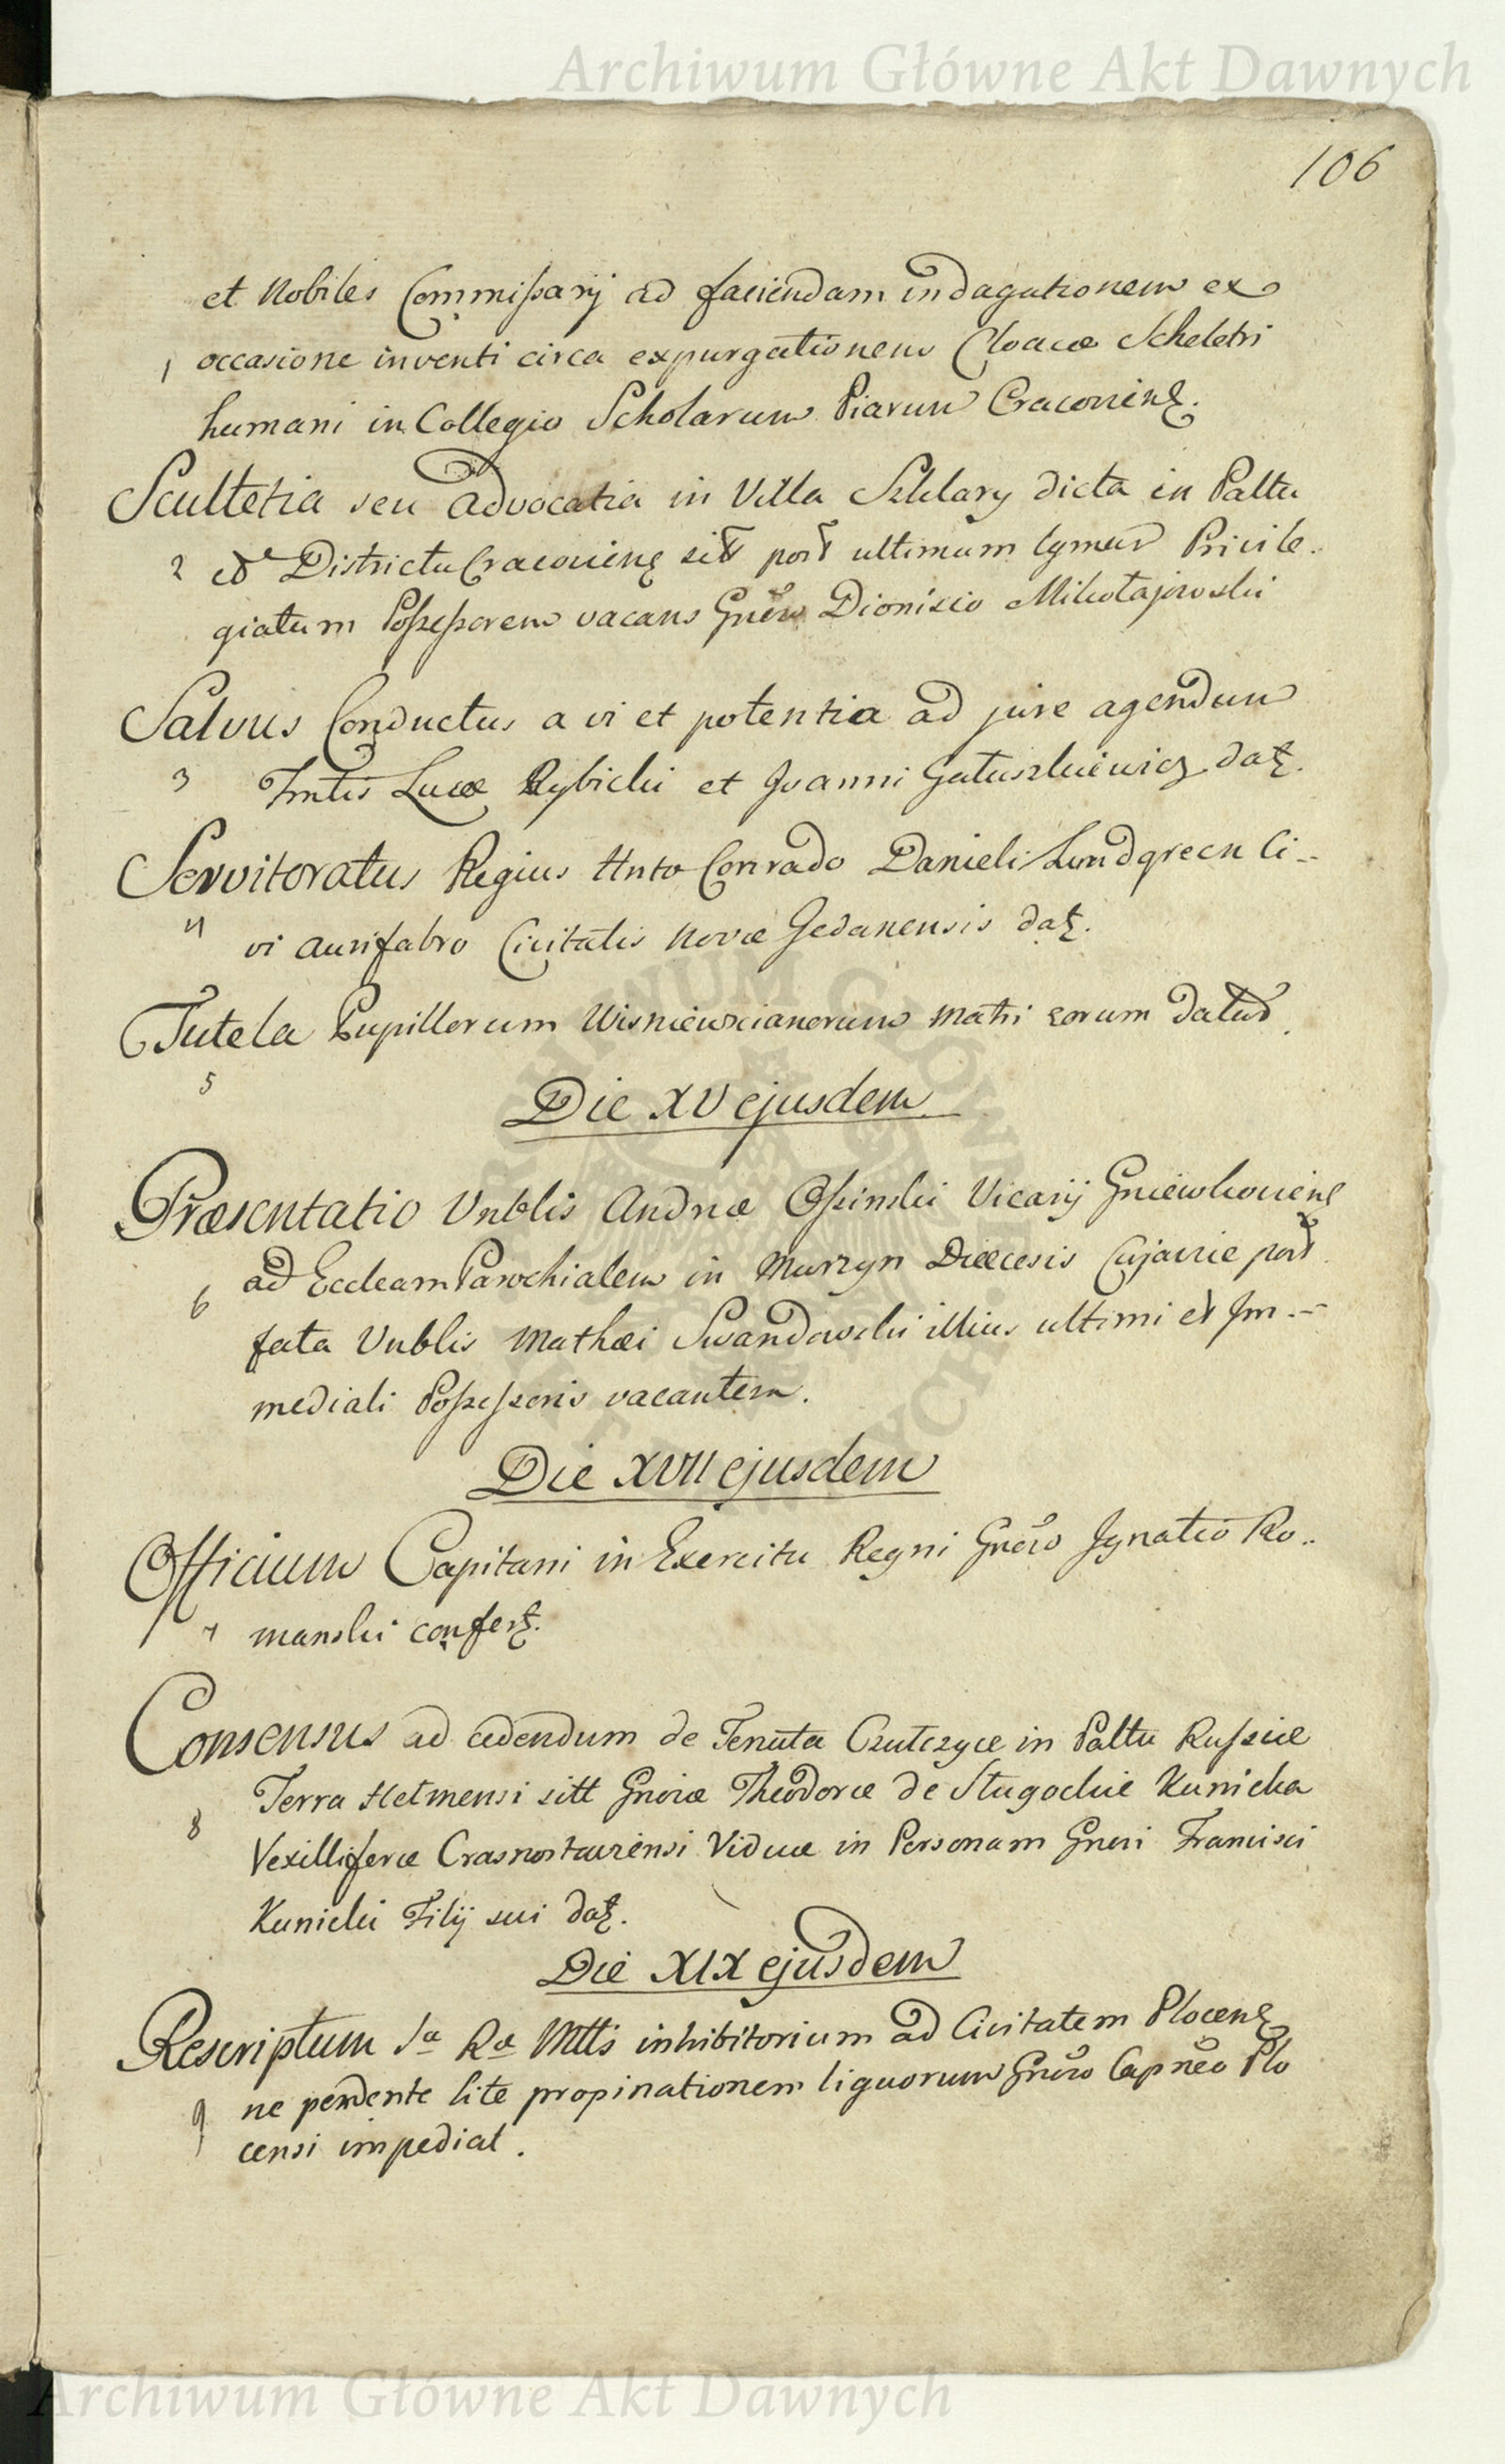 Archiwum Główne Akt Dawnych
106
et Nobiles Commissarij ad faciendam indagationem ex
1 occasione inventi circa expurgationem Cloacæ Scheletri
humani in Collegio Scholarum Piarum Cracovien.
Scultetia seu advocatia in Villa Szklary dicta in Paltu
2 et Districtu Cracovien sit post ultimum Privile-
giatum Possessorem vacans Gnero Dionisio Mikołajewski
Salvus Conductus a vi et potentia ad jure agendum
3 Lucæ Rybicki et Joanni Gałuszkiewicz dat.
Servitoratus Regius Hnto Conrado Danieli Lundgreen Ci-
4 vi aurifabro Civitatis Novæ Gedanensis dat.
Tutela Pupillorum Wisniewscianorum Matri eorum datur.
5
Die XV ejusdem
Præsentatio Vnblis Andreæ Ossinski Vicarij Gniewkovien
6 ad Eccleam Parochialem in Murzyn Diæcesis Cujaviæ post
fata Vnblis Mathæi Swandowski illius ultimi et Im-
mediati Possessoris vacantem.
Die XVII ejusdem
Officium Capitani in Exercitu Regni Gnero Ignatio Ro-
7 manski confert.
Consensus ad cedendum de Tenuta Czułczyce in Paltu Russiæ
Terra Helmensi sitt Gnosæ Theodoræ de Długockie Kunicka
8 Vexilliferæ Crasnostaviensi Viduæ in Personam Gnesi Francisci
Kunicki Filij sui dat.
Die XIX ejusdem
Rescriptum Sæ Ræ Mttis inhibitorium ad Civitatem Plocen
9 ne pendente lite propinationem liquorum Gnero Capneo Plo
censi impediat.
Archiwum Główne Akt Dawnych